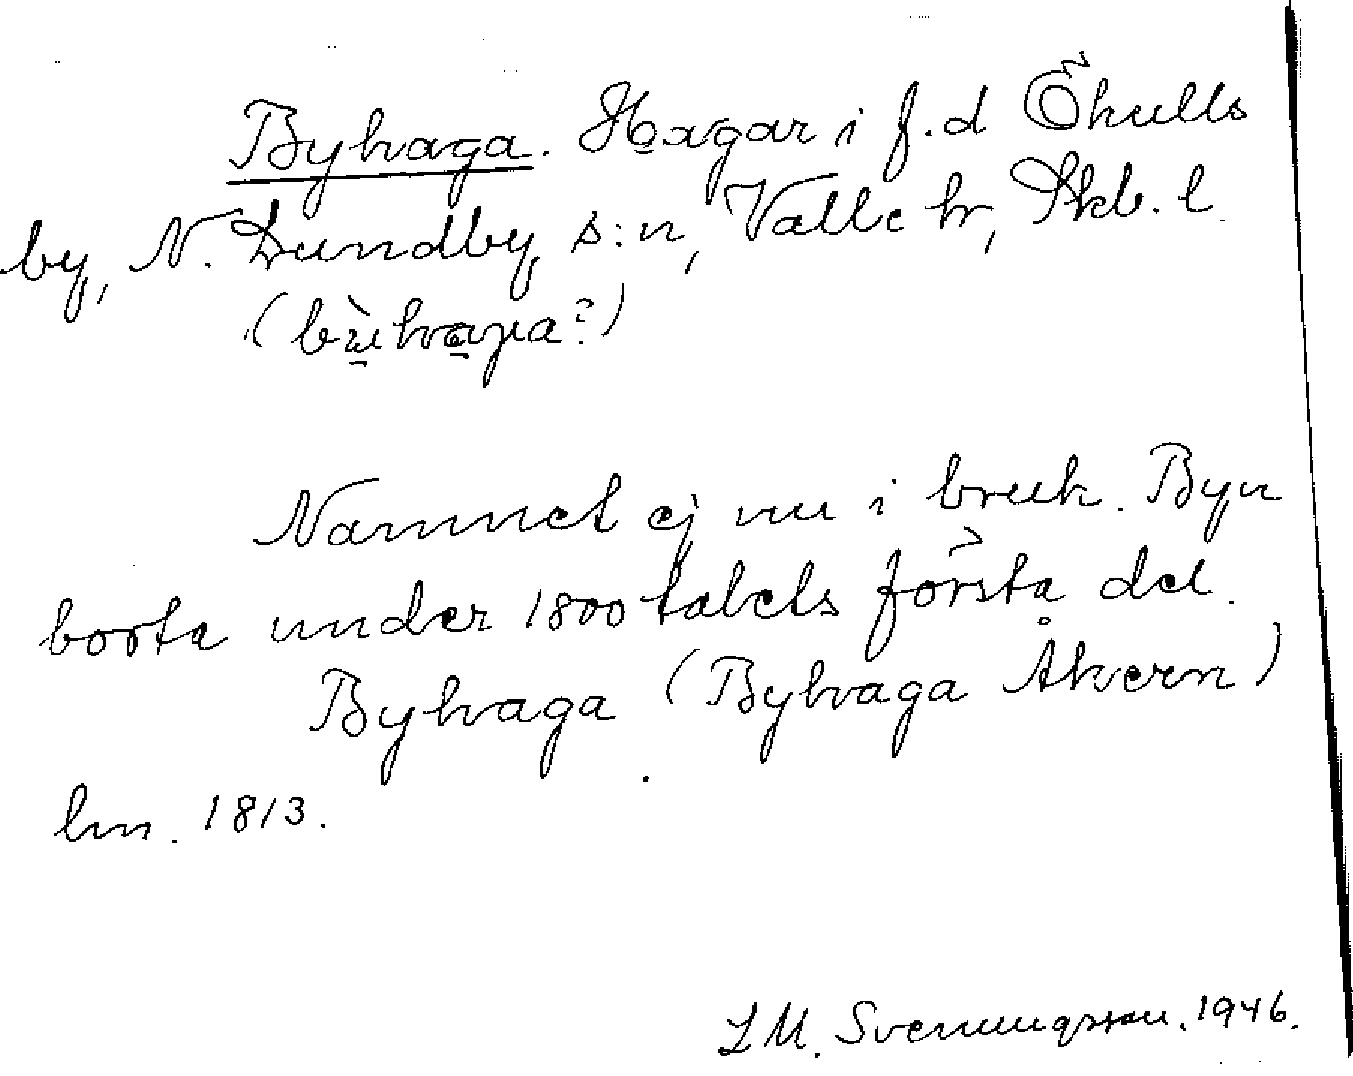 Byhaga. Hagar i f.d Ökulls
by, N. Lundby s:n, Valle hr, Skb. l.
Namnet ej nu i bruk. Byn
borta under 1800talets första del.
Byhaga (Byhaga Åkern)
lm. 1813.
L M. Svenungsson. 1946.